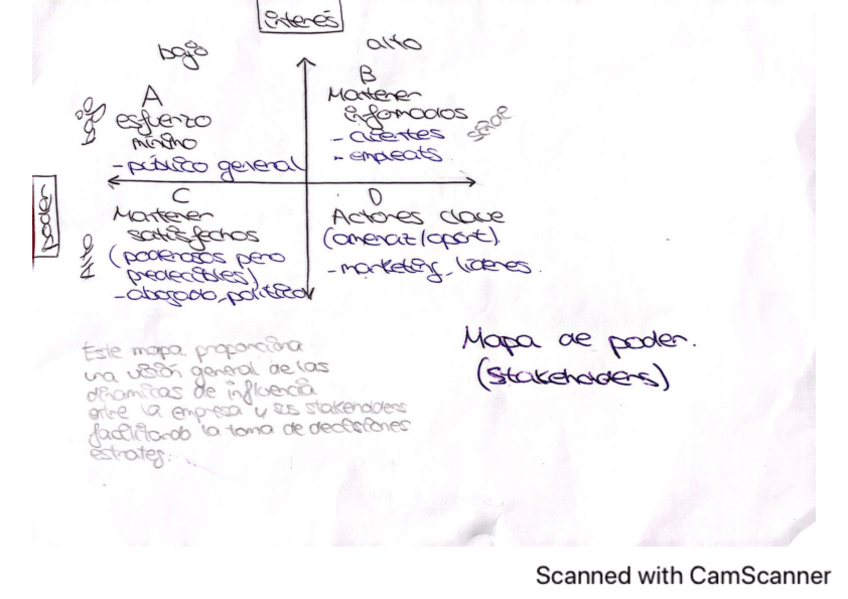 interés
bajo
alto
poder
bajo
alto
A
esfuerzo
mínimo
- público general
B
Mantener
informados
- clientes
- empleats.
C
Mantener
satisfechos
(poderosos pero
predecibles)
- abogado, político
D
Actores clave
(amenaz/oport)
- marketing, líderes.
Mapa de poder.
(Stakeholders)
Este mapa proporciona
una visión general de las
dinámicas de influencia
entre la empresa y sus stakeholders
facilitando la toma de decisiones
estrateg.
Scanned with CamScanner